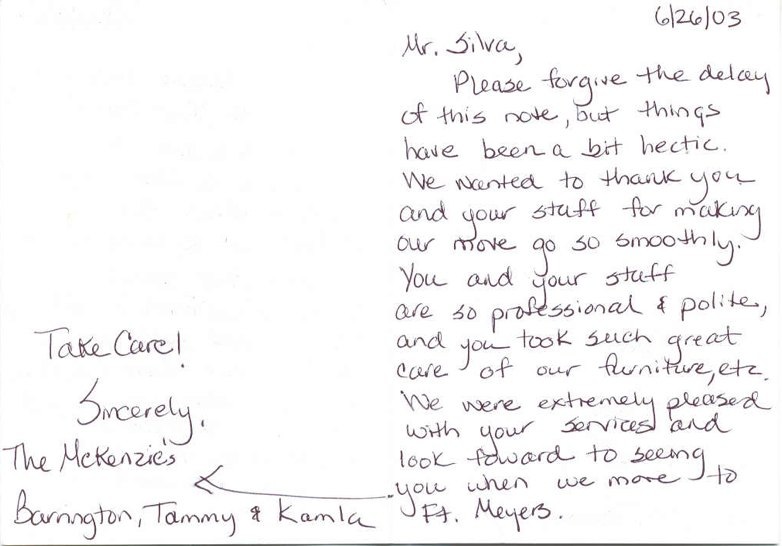 6/26/03
Mr. Silva,
Please forgive the delay
of this note, but things
have been a bit hectic.
We wanted to thank you
and your staff for making
our move go so smoothly.
You and your staff
are so professional & polite,
and you took such great
care of our furniture, etc.
We were extremely pleased
with your services and
look foward to seeing
you when we move to
Ft. Meyers.
Take Care!
Sincerely,
The McKenzie's
Barrington, Tammy & Kamla